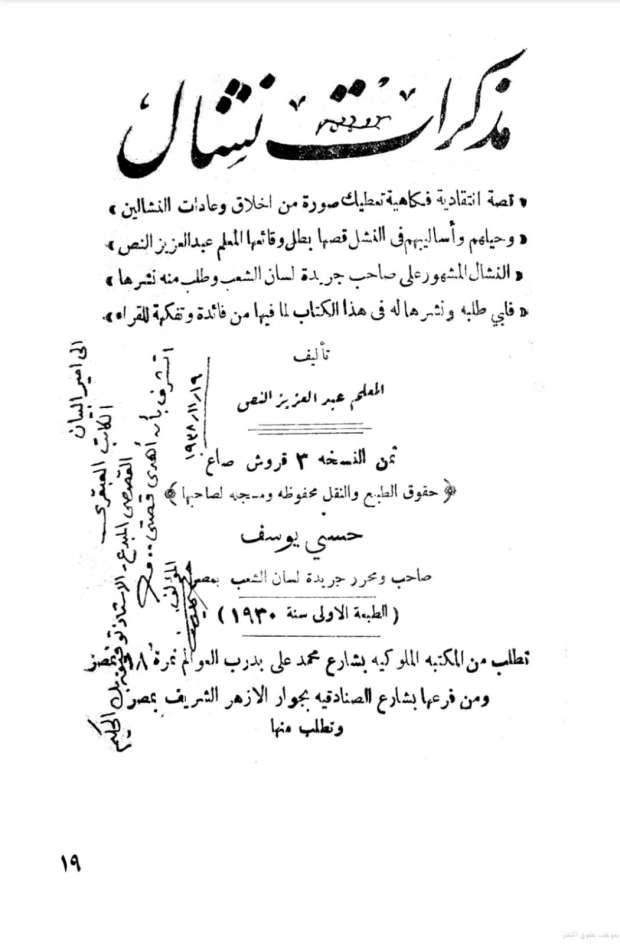 مذكرات نشال
« قصة انتقادية فكاهية تعطيك صورة من اخلاق وعادات النشالين »
« وحيلهم وأساليبهم فى النشل قصها بطل وقائعها المعلم عبد العزيز النص »
« النشال المشهور على صاحب جريدة لسان الشعب وطلب منه نشرها »
« فلبي طلبه ونشرها له فى هذا الكتاب لما فيها من فائدة وتفكهة للقراء ».
تأليف
المعلم عبد العزيز النص
ثمن النسخه ٣ قروش صاغ
﴿ حقوق الطبع والنقل محفوظه ومسجله لصاحبها ﴾
حسني يوسف
صاحب ومحرر جريدة لسان الشعب بمصر
( الطبعة الاولى سنة ١٩٣٠ )
تطلب من المكتبه الملوكيه بشارع محمد على بدرب العوالم نمرة ٨ بمصر
ومن فرعها بشارع الصنادقيه بجوار الازهر الشريف بمصر
وتطلب منها
الى امير البيان
الكاتب العبقرى
القصصى المبدع - الاستاذ توفيق بك الحكيم
اتشرف بأن أهدى قصتى ..
١٩٣٨/١١/١٩
المؤلف
١٩